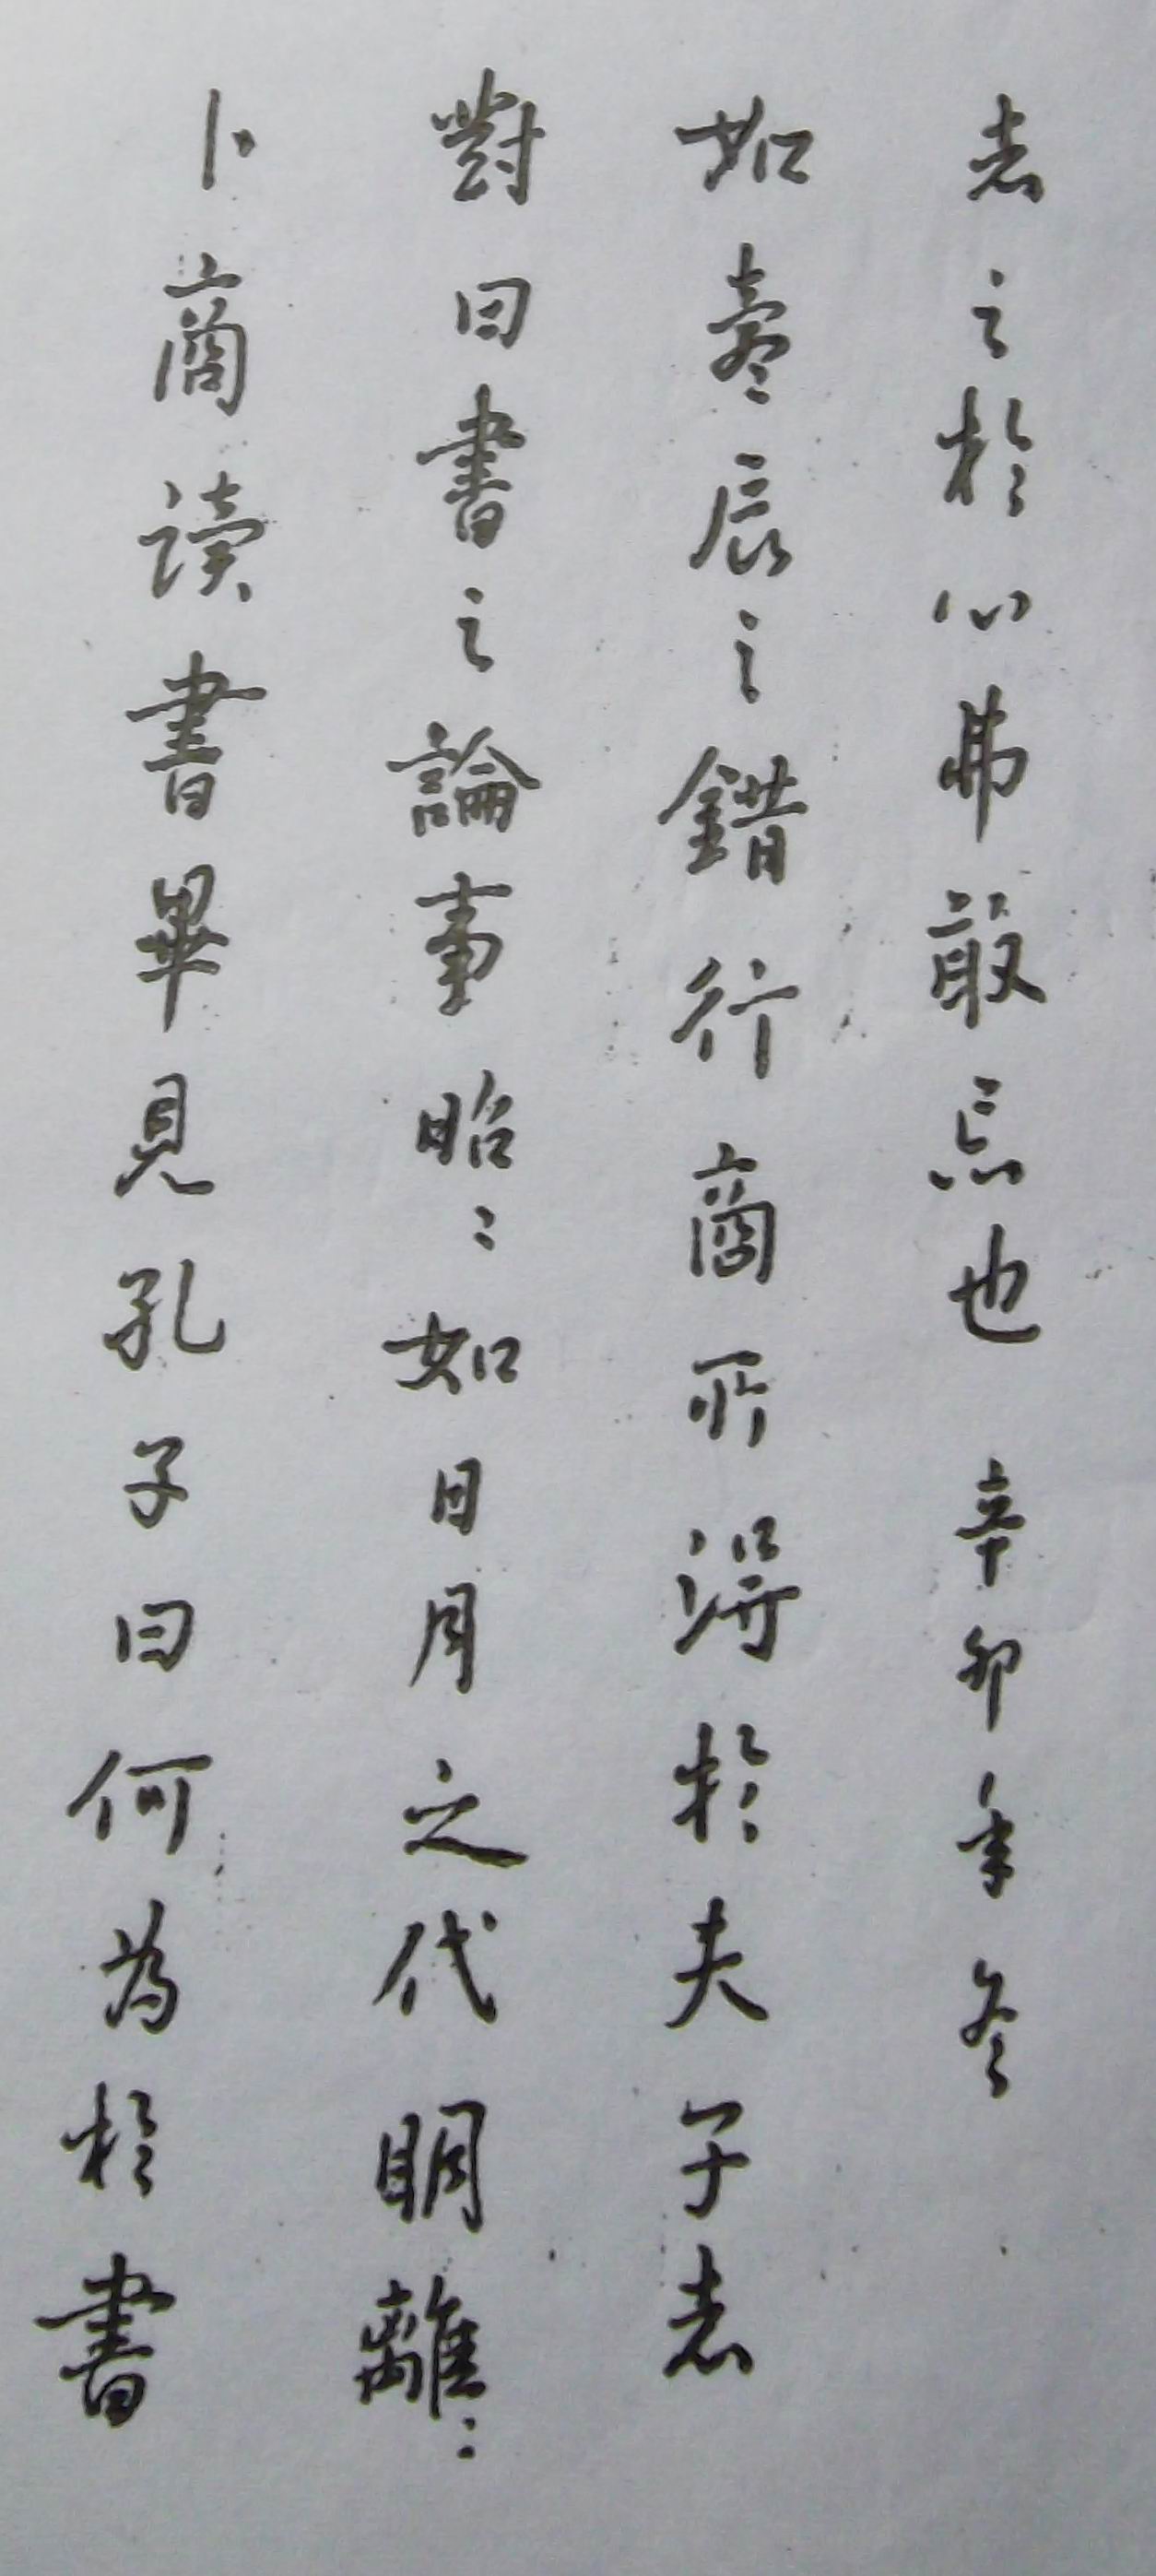 卜商讀書畢見孔子曰何為於書
對曰書之論事昭〻如日月之代明離〻
如參辰之錯行商所得於夫子志
志之於心弗敢忘也 辛卯年冬